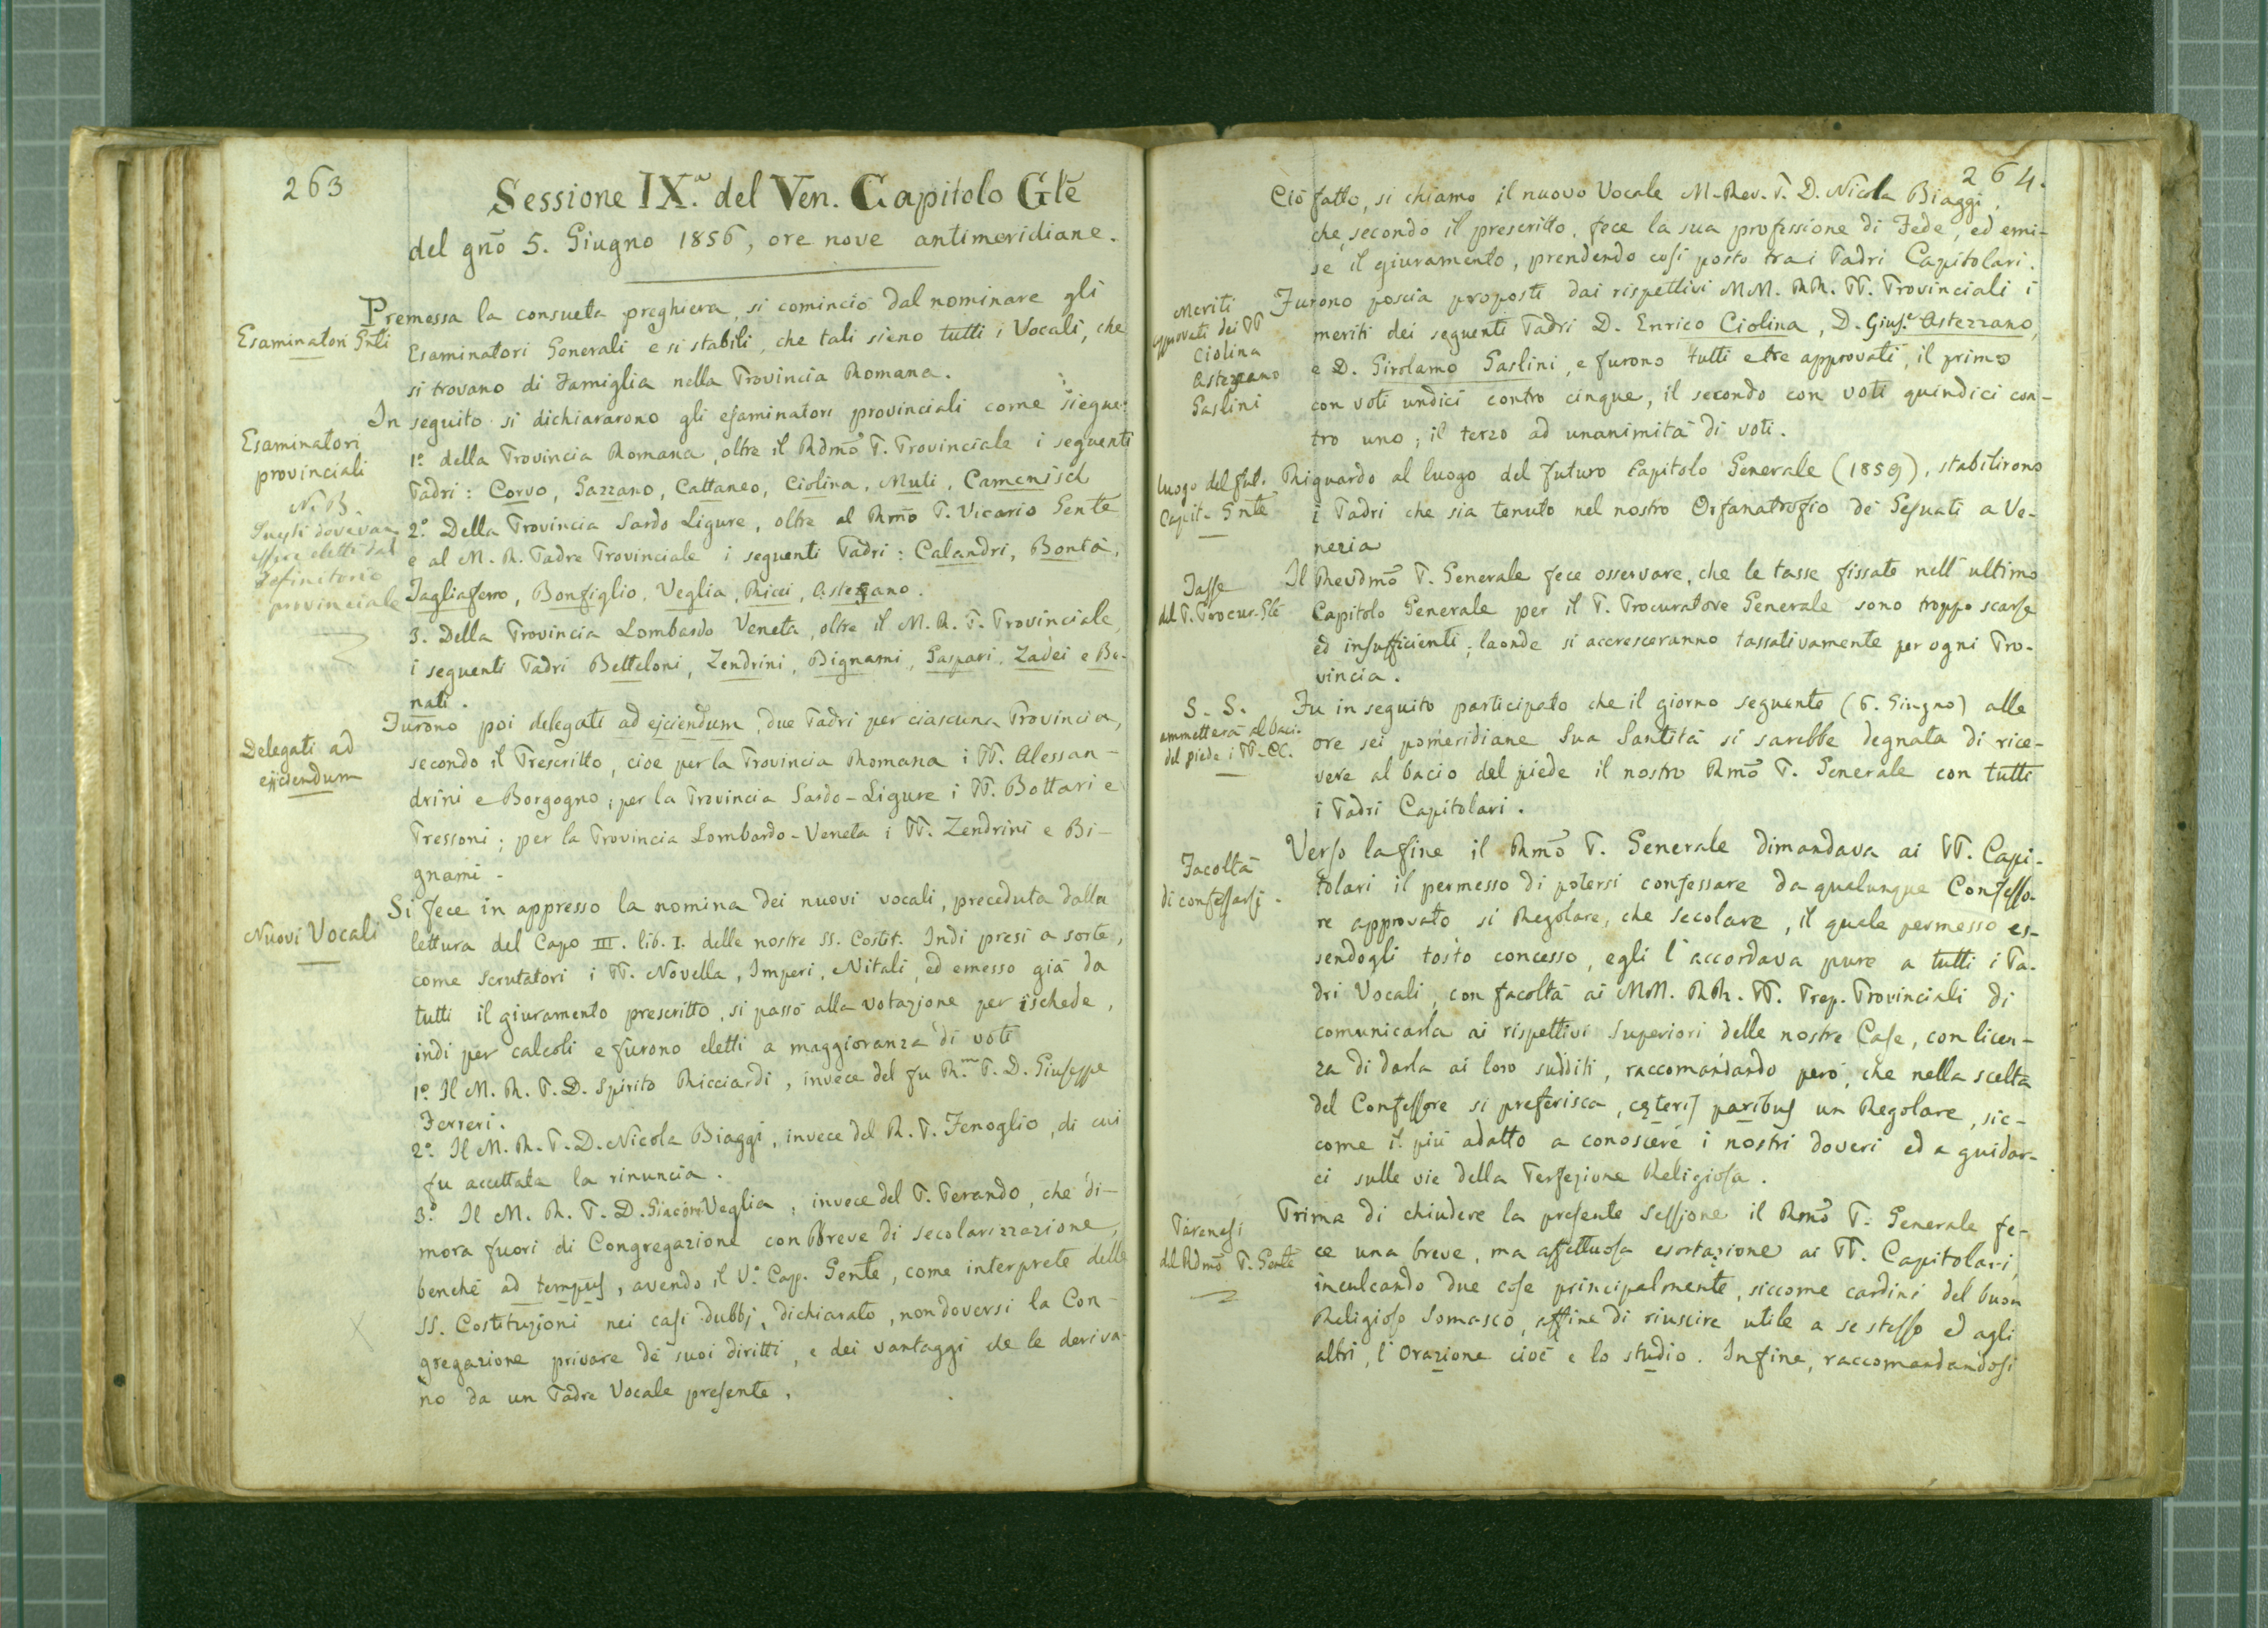 263
Sessione IX.ª del Ven. Capitolo Glẽ
del gnõ 5. Giugno 1856, ore nove antimeridiane.
Premessa la consueta preghiera, si cominciò dal nominare gli
Esaminatori Gnli
Esaminatori Generali e si stabilì, che tali sieno tutti i Vocali, che
si trovano di Famiglia nella Provincia Romana.
In seguito si dichiararono gli esaminatori provinciali come siegue:
Esaminatori
provinciali
1º della Provincia Romana, oltre il Rdmõ P. Provinciale i seguenti
Padri: Corvo, Gazzano, Cattaneo, Ciolina, Muti, Camenisch
N. B.
Quegli dovevan
essere eletti dal
Definitorio
provinciale
2º Della Provincia Sardo Ligure, oltre al Rmõ P. Vicario Gente
e al M. R. Padre Provinciale i seguenti Padri: Calandri, Bontà,
Tagliaferro, Bonfiglio, Veglia, Ricci, Astezzano.
3. Della Provincia Lombardo Veneta, oltre il M. R. P. Provinciale,
i seguenti Padri Betteloni, Zendrini, Bignami, Gaspari, Zadei e Be-
nati.
Delegati ad
ejiciendum
Furono poi delegati ad ejciendum, due Padri per ciascuna Provincia,
secondo il Prescritto, cioè per la Provincia Romana i PP. Alessan-
drini e Borgogno; per la Provincia Sardo-Ligure i PP. Bottari e
Pressoni; per la Provincia Lombardo-Veneta i PP. Zendrini e Bi-
gnami.
Nuovi Vocali
Si fece in appresso la nomina dei nuovi vocali, preceduta dalla
lettura del Capo III. lib. I. delle nostre SS. Costit. Indi presi a sorte,
come Scrutatori i PP. Novella, Imperi, Nitali, ed emesso già da
tutti il giuramento prescritto, si passò alla votazione per ischede,
indi per calcoli e furono eletti a maggioranza di voti
1º Il M. R. P. D. Spirito Ricciardi, invece del fu R.m P. D. Giuseppe
Ferreri.
2º Il M. R. P. D. Nicola Biaggi, invece del R. P. Fenoglio, di cui
fu accettata la rinuncia.
3º Il M. R. P. D. Giacomo Veglia, invece del P. Ferando, che di-
mora fuori di Congregazione con Breve di secolarizzazione,
benchè ad tempus, avendo il V.º Cap. Gente, come interprete delle
SS. Costituzioni nei casi dubbj, dichiarato, non doversi la Con-
gregazione privare de' suoi diritti, e dei vantaggi che le deriva-
no da un Padre Vocale presente.
264.
Ciò fatto, si chiamò il nuovo Vocale M. Rev. P. D. Nicola Biaggi,
che, secondo il prescritto, fece la sua professione di Fede, ed emi-
se il giuramento, prendendo così posto tra i Padri Capitolari.
Meriti
approvati dei PP
Ciolina
Astezzano
Gaslini
Furono poscia proposti dai rispettivi MM. RR. PP. Provinciali i
meriti dei seguenti Padri D. Enrico Ciolina, D. Gius.e Astezzano,
e D. Girolamo Gaslini, e furono tutti e tre approvati, il primo
con voti undici contro cinque, il secondo con voti quindici con-
tro uno; il terzo ad unanimità di voti.
Luogo del fut.
Capit. Gnte
Riguardo al luogo del futuro Capitolo Generale (1859), stabilirono
i Padri che sia tenuto nel nostro Orfanatrofio de' Gesuati a Ve-
nezia
Tasse
del P. Procur. Gle
Il Revdmõ P. Generale fece osservare, che le tasse fissate nell'ultimo
Capitolo Generale per il P. Procuratore Generale sono troppo scarse
ed insufficienti; laonde si accresceranno tassativamente per ogni Pro-
vincia.
S. S.
ammetterà al bacio
del piede i PP. CC.
Fu in seguito participato che il giorno seguente (6. Giugno) alle
ore sei pomeridiane Sua Santità si sarebbe degnata di rice-
vere al bacio del piede il nostro Rmõ P. Generale con tutti
i Padri Capitolari.
Facoltà
di confessarsi.
Verso la fine il Rmõ P. Generale dimandava ai PP. Capi-
tolari il permesso di potersi confessare da qualunque Confesso-
re approvato sì Regolare, che secolare, il quale permesso es-
sendogli tosto concesso, egli l'accordava pure a tutti i Pa-
dri Vocali, con facoltà ai MM. RR. PP. Prep. Provinciali di
comunicarla ai rispettivi Superiori delle nostre Case, con licen-
za di darla ai loro sudditi, raccomandando però, che nella scelta
del Confessore si preferisca, cęteris paribus un Regolare, sic-
come il più adatto a conoscere i nostri doveri ed a guidar-
ci sulle vie della Perfezione Religiosa.
Parenesi
del Rdmõ P. Gente
Prima di chiudere la presente Sessione il Rmõ P. Generale fe-
ce una breve, ma affettuosa esortazione ai PP. Capitolari,
inculcando due cose principalmente, siccome cardini del buon
Religioso Somasco, affine di riuscire utile a se stesso ed agli
altri, l'Orazione cioè e lo studio. Infine, raccomandandosi